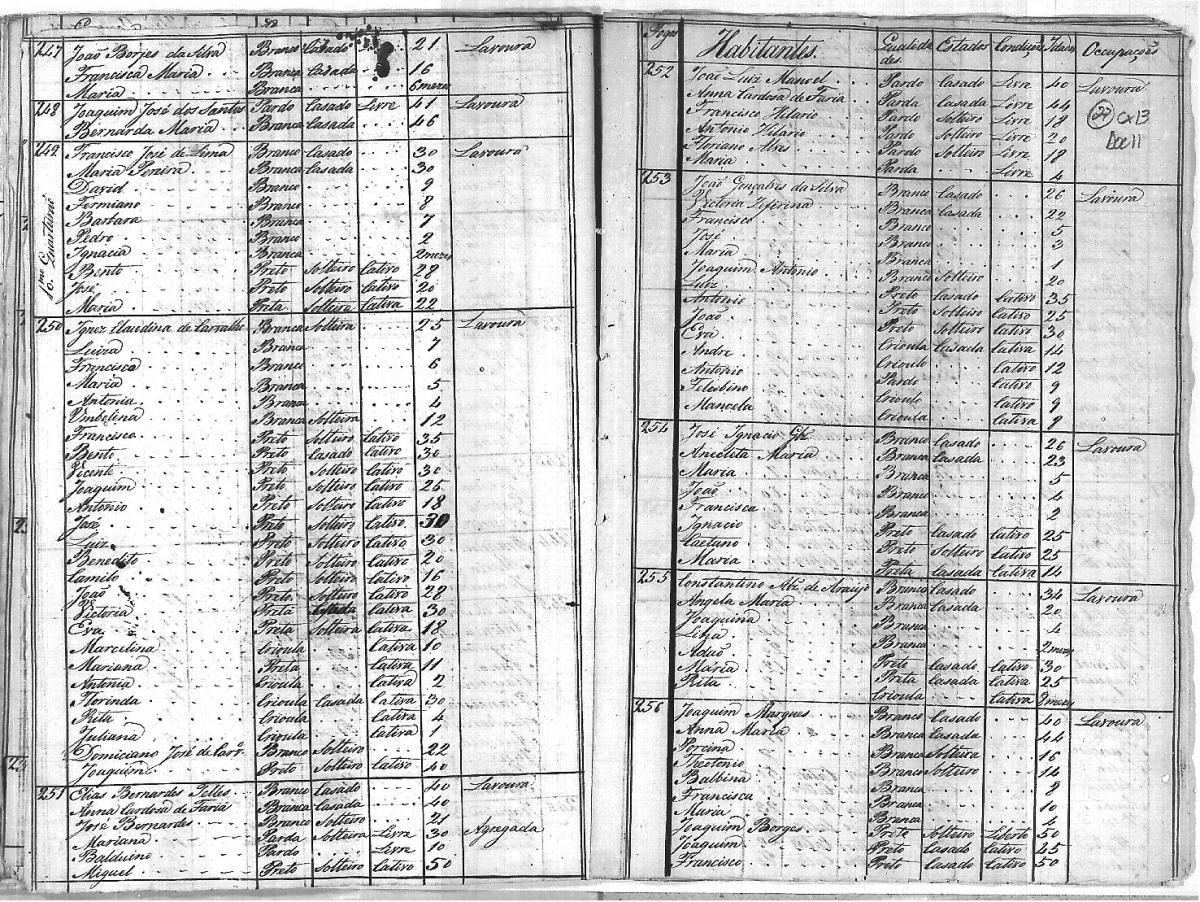 247 João Borges da Silva Branco Casado 21 Lavoura
Francisca Maria Branca Casada 16
Maria Branca 6 mezes
248 Joaquim José dos Santos Pardo Casado Livre 41 Lavoura
Bernarda Maria Branca Casada 46
249 Francisco José de Lima Branco Casado 30 Lavoura
Maria Pereira Branca Casada 30
David Branco 9
Firmiano Branco 8
Barbara Branca 7
Pedro Branco 2
Ignacia Branca 2 mezes
Bento Preto Solteiro Cativo 28
José Preto Solteiro Cativo 20
Maria Preta Solteira Cativa 22
250 Ignez Claudina de Carvalho Branca Solteira 25 Lavoura
Luiza Branca 7
Francisca Branca 6
Maria Branca 5
Antonia Branca 4
Umbelina Branca Solteira 12
Francisco Preto Solteiro Cativo 35
Bento Preto Casado Cativo 30
Vicente Preto Solteiro Cativo 30
Joaquim Preto Solteiro Cativo 25
Antonio Preto Solteiro Cativo 18
José Preto Solteiro Cativo
Luiz Preto Solteiro Cativo 30
Benedito Preto Solteiro Cativo 20
Camilo Preto Solteiro Cativo 16
João Preto Solteiro Cativo 22
Victoria Preta Casada Cativa 30
Eva Preta Solteira Cativa 18
Marcelina Crioula Cativa 10
Mariana Preta Cativa 11
Antonia Crioula Cativa 2
Florinda Crioula Casada Cativa 30
Rita Crioula Cativa 4
Juliana Crioula Cativa 1
Domiciano José de Carvº Branco Solteiro 22
Joaquim Preto Solteiro Cativo 40
251 Elias Bernardes Telles Branco Casado 40 Lavoura
Anna Cardosa de Faria Branca Casada 40
José Bernardes Branco Solteiro 21
Mariana Parda Solteira Livre 30 Agregada
Balduino Pardo Livre 10
Miguel Preto Solteiro Cativo 50
Fogos Habitantes. Qualidades. Estados Condição Idades Occupaçoẽs
252 João Luiz Manoel Pardo Casado Livre 40 Lavoura
Anna Cardosa de Faria Parda Casada Livre 44
Francisco Hilario Pardo Solteiro Livre 18
Antonio Hilario Pardo Solteiro Livre 20
Floriano Alves Pardo Solteiro Livre 18
Maria Parda Livre 4
27 CX13
Doc11
253 João Gonçalves da Silva Branco Casado 26 Lavoura
Victoria Ziferina Branca Casada 22
Francisco Branco 5
José Branco 3
Maria Branca 1
Joaquim Antonio Branco Solteiro 20
Luiz Preto Casado Cativo 35
Antonio Preto Solteiro Cativo 25
João Preto Solteiro Cativo 30
Eva Crioula Casada Cativa 14
Andre Crioulo Cativo 12
Antonio Pardo Cativo 9
Felesbino Crioulo Cativo 9
Manoela Crioula Cativa 9
254 José Ignacio Branco Casado 26 Lavoura
Anecleta Maria Branca Casada 23
Maria Branca 5
João Branco 4
Francisca Branca 2
Ignacio Preto Casado Cativo 25
Caetano Preto Solteiro Cativo 25
Maria Preta Casada Cativa 14
255 Constantino Alz. de Araujo Branco Casado 34 Lavoura
Angela Maria Branca Casada 20
Joaquina Branca 4
Branca 2 mezes
Adão Preto Casado Cativo 30
Maria Preta Casada Cativa 25
Rita Crioula Cativa 2 mezes
256 Joaquim Marques Branco Casado 40 Lavoura
Anna Maria Branca Casada 44
Porcina Branca Solteira 16
Theotonio Branco Solteiro 14
Balbina Branca
Francisca Branca 10
Maria Branca 4
Joaquim Borges Preto Solteiro Liberto 50
Joaquim Preto Casado Cativo 45
Francisco Preto Casado Cativo 50